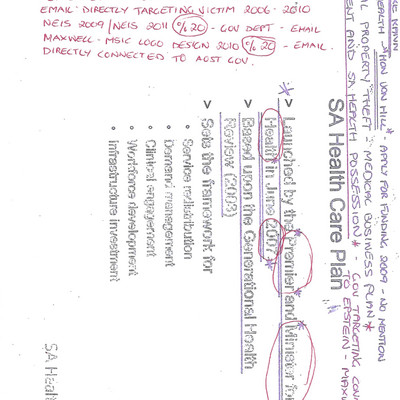 EMAIL - DIRECTLY TARGETING VICTIM 2006 - 2010
NEIS 2009/NEIS 2011 (% 20) - GOV DEPT - EMAIL
MAXWELL - MSIC LOGO DESIGN 2010 (% 20) - EMAIL.
DIRECTLY CONNECTED TO AUST GOV.
HEALTH - *HON JON HILL* - APPLY FOR FUNDING 2009 - NO MENTION
PROPERTY THEFT - MEDICAL BUSINESS PLAN*
AND SA HEALTH POSSESSION* - GOV TARGETING
TO EPSTEIN - MAXW
SA Health Care Plan
* > Launched by the Premier and Minister for
Health in June 2007
> Based upon the Generational Health
Review (2003)
> Sets the framework for
• Service redistribution
• Demand management
• Clinical engagement
• Workforce development
• Infrastructure investment
SA Healt